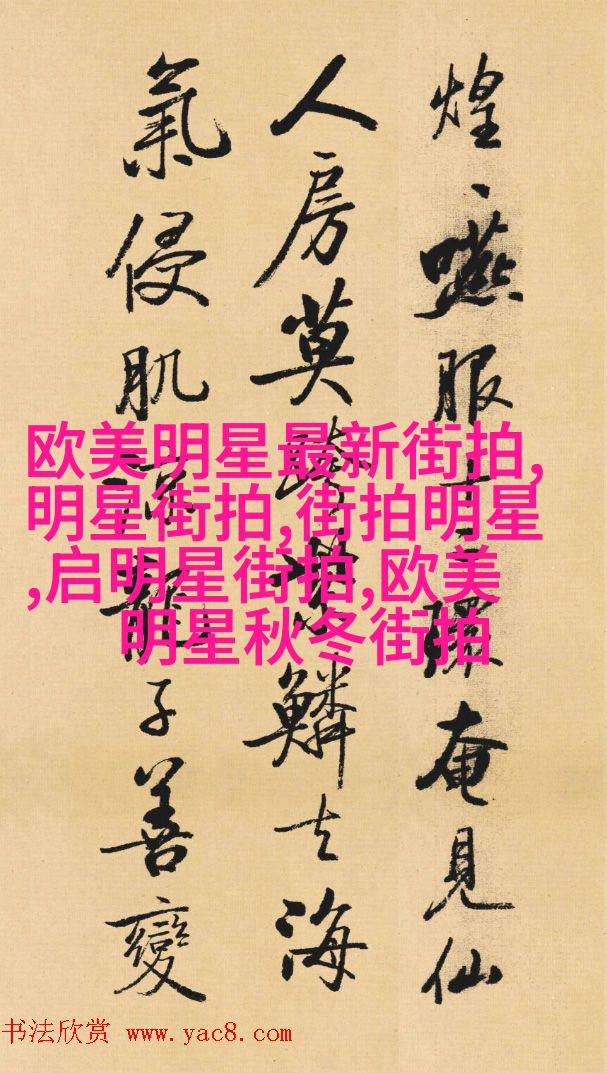 煌、嚥服十二環奄見仙
人房莫跨紫鱗去海
氣侵肌涼龍子善變
欧美明星最新街拍,
明星街拍,街拍明星
,启明星街拍,欧美
明星秋冬街拍
书法欣赏 www.yac8.com